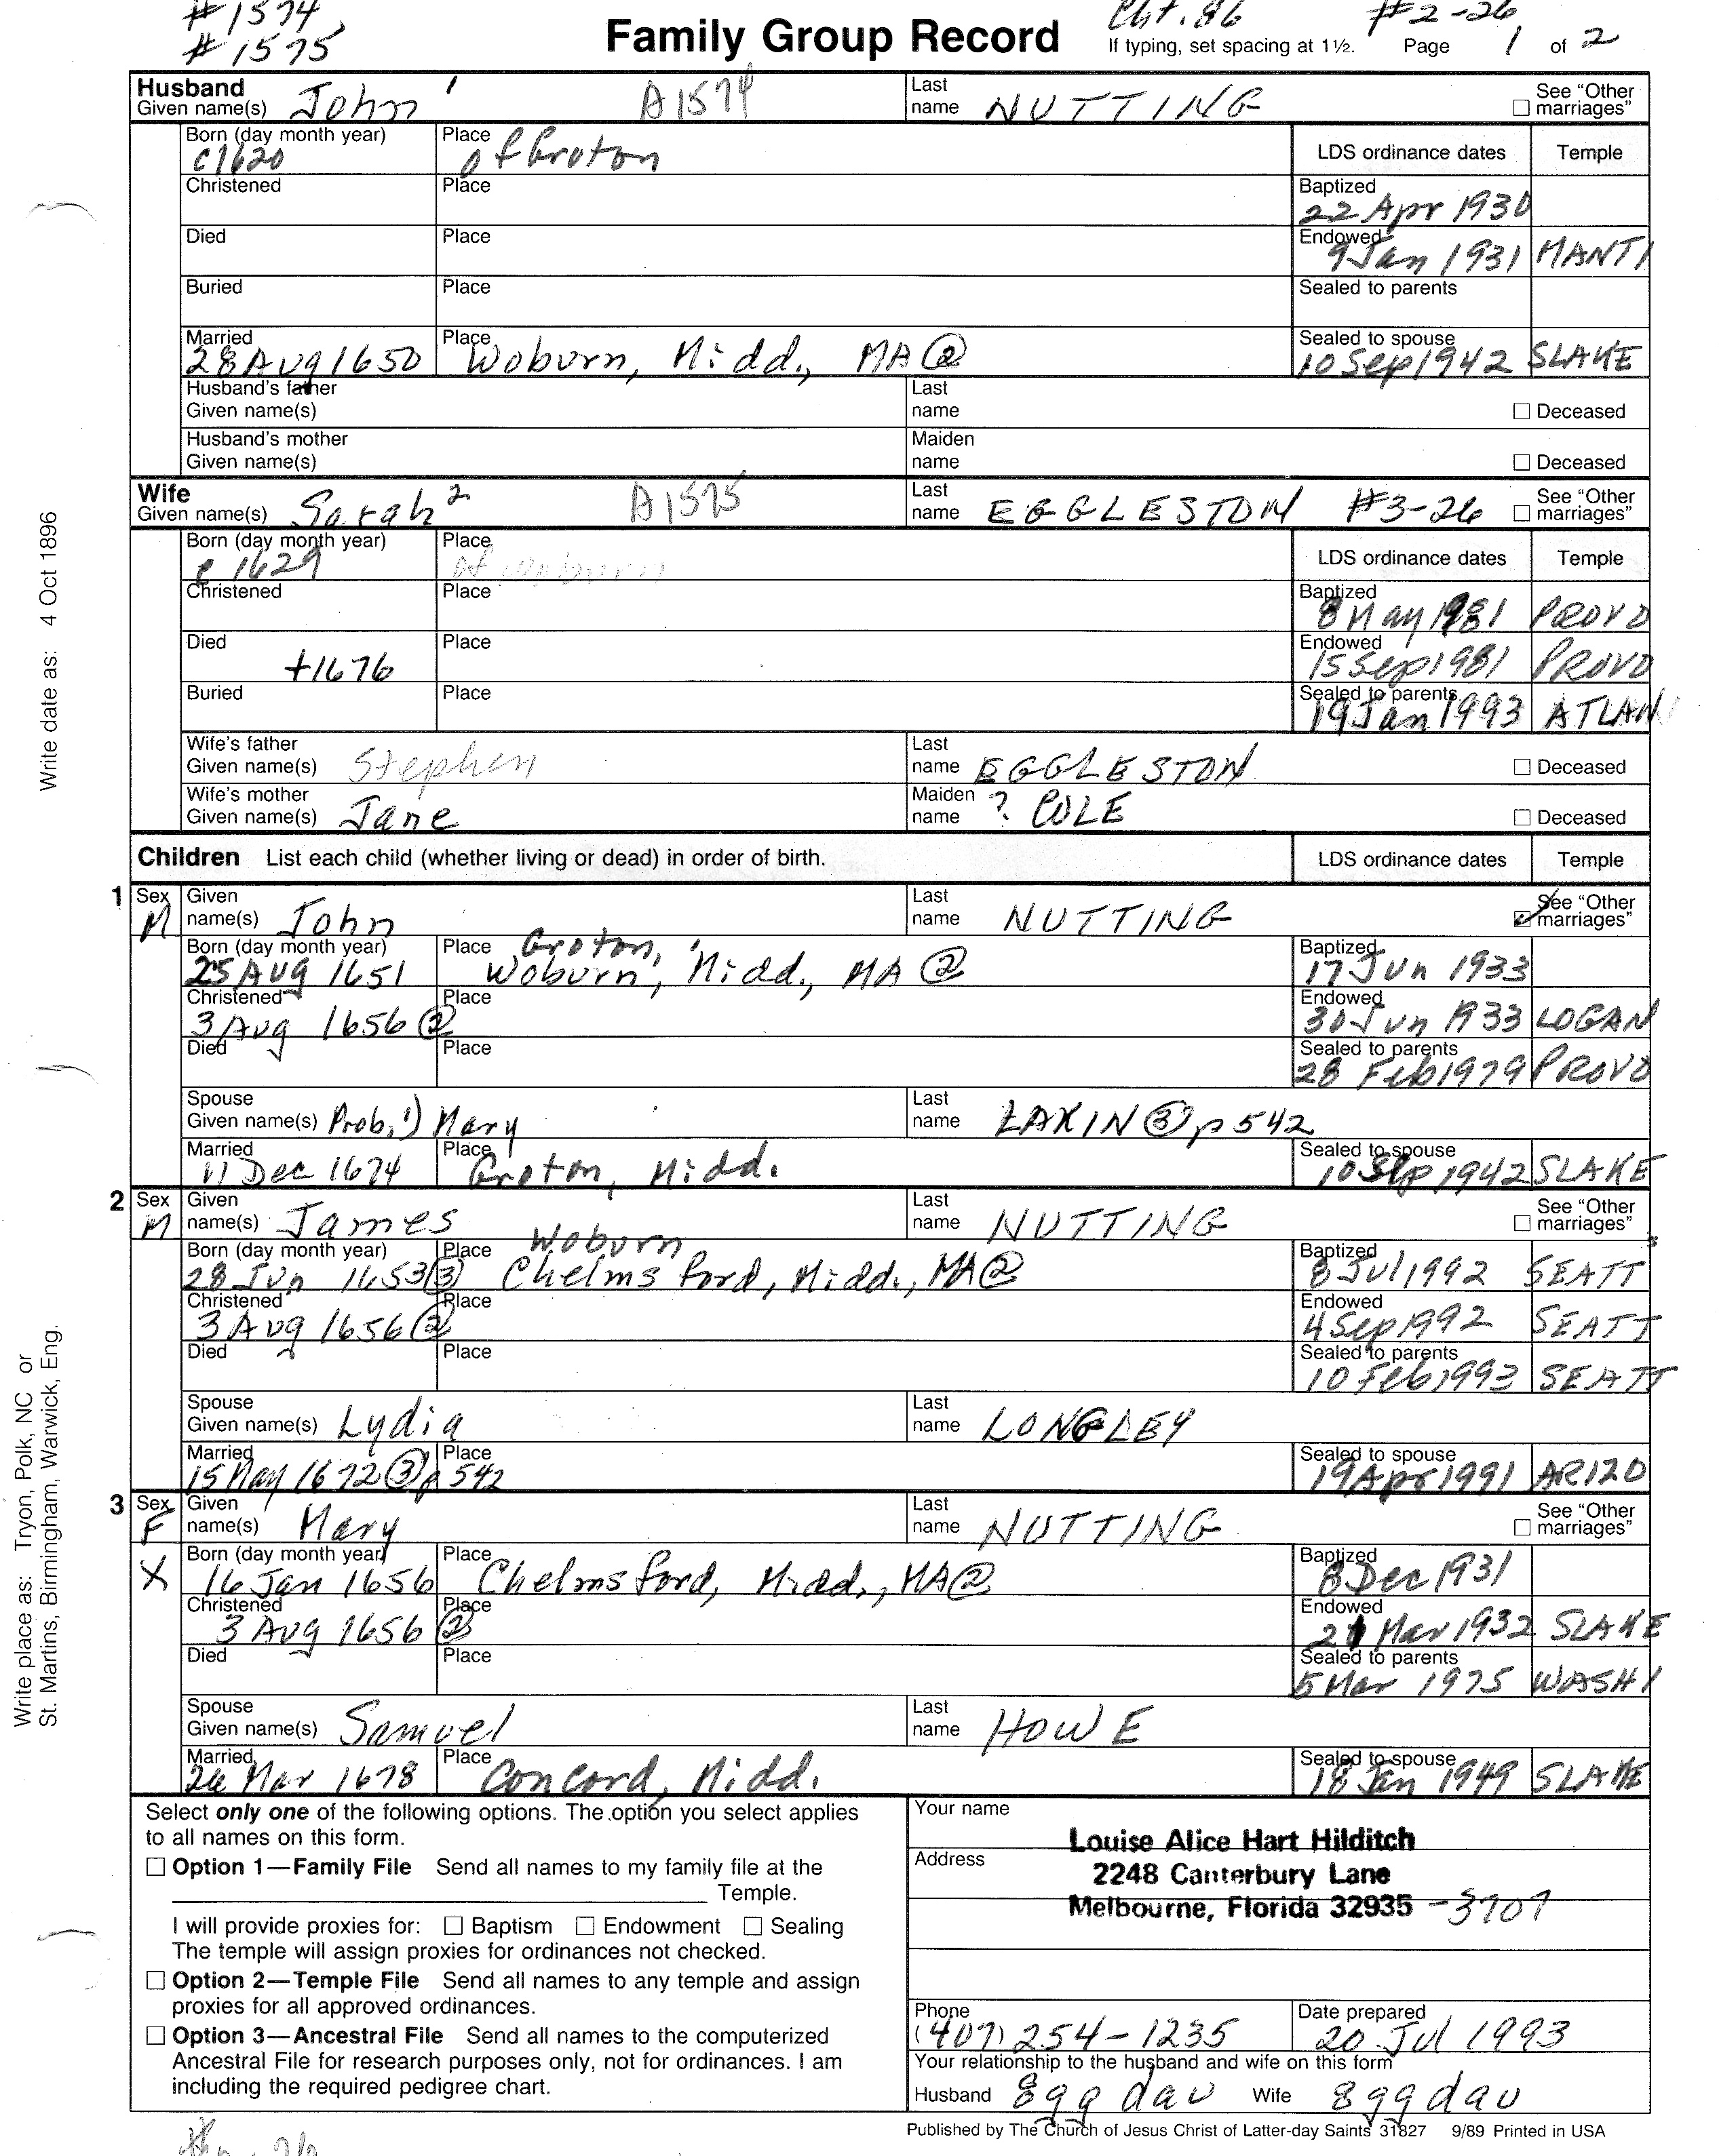 #1574
#1575
Family Group Record
Cht. 86 #2-26
If typing, set spacing at 1½. Page 1 of 2
Husband
Given name(s) John ¹ A1574 Last name NUTTING See "Other marriages"
Born (day month year) c1620 Place of Groton LDS ordinance dates Temple
Christened Place Baptized 22 Apr 1930
Died Place Endowed 9 Jan 1931 MANTI
Buried Place Sealed to parents
Married 28 Aug 1650 Place Woburn, Midd., MA @ Sealed to spouse 10 Sep 1942 SLAKE
Husband's father Given name(s) Last name Deceased
Husband's mother Given name(s) Maiden name Deceased
Wife
Given name(s) Sarah ² A1575 Last name EGGLESTON #3-26 See "Other marriages"
Born (day month year) c 1629 Place of Woburn LDS ordinance dates Temple
Christened Place Baptized 8 May 1981 PROVO
Died +1676 Place Endowed 15 Sep 1981 PROVO
Buried Place Sealed to parents 19 Jan 1993 ATLAN
Wife's father Given name(s) Stephen Last name EGGLESTON Deceased
Wife's mother Given name(s) Jane Maiden name ? COLE Deceased
Children List each child (whether living or dead) in order of birth. LDS ordinance dates Temple
1 Sex M Given name(s) John Last name NUTTING See "Other marriages"
Born (day month year) 25 Aug 1651 Place Groton, Woburn, Midd., MA ② Baptized 17 Jun 1933
Christened 3 Aug 1656 ② Place Endowed 30 Jun 1933 LOGAN
Died Place Sealed to parents 28 Feb 1979 PROVO
Spouse Given name(s) Prob, 1) Mary Last name LAKIN ③ p 542
Married 11 Dec 1674 Place Groton, Midd. Sealed to spouse 10 Sep 1942 SLAKE
2 Sex M Given name(s) James Last name NUTTING See "Other marriages"
Born (day month year) 28 Jun 1653 ③ Place Woburn Chelmsford, Midd., MA ② Baptized 8 Jul 1992 SEATT
Christened 3 Aug 1656 ② Place Endowed 4 Sep 1992 SEATT
Died Place Sealed to parents 10 Feb 1993 SEATT
Spouse Given name(s) Lydia Last name LONGLEY
Married 15 May 1672 ③ p 542 Place Sealed to spouse 19 Apr 1991 ARIZO
3 Sex F Given name(s) Mary Last name NUTTING See "Other marriages"
X Born (day month year) 16 Jan 1656 Place Chelmsford, Midd., MA ② Baptized 8 Dec 1931
Christened 3 Aug 1656 ② Place Endowed 21 Mar 1932 SLAKE
Died Place Sealed to parents 5 Mar 1975 WASHI
Spouse Given name(s) Samuel Last name HOWE
Married 26 Mar 1678 Place Concord, Midd. Sealed to spouse 18 Jan 1949 SLAKE
Select only one of the following options. The option you select applies
to all names on this form.
Option 1—Family File Send all names to my family file at the
Temple.
I will provide proxies for: Baptism Endowment Sealing
The temple will assign proxies for ordinances not checked.
Option 2—Temple File Send all names to any temple and assign
proxies for all approved ordinances.
Option 3—Ancestral File Send all names to the computerized
Ancestral File for research purposes only, not for ordinances. I am
including the required pedigree chart.
Your name Louise Alice Hart Hilditch
Address 2248 Canterbury Lane
Melbourne, Florida 32935 -3707
Phone (407) 254-1235 Date prepared 20 Jul 1993
Your relationship to the husband and wife on this form
Husband 8gg dau Wife 8gg dau
Published by The Church of Jesus Christ of Latter-day Saints 31827 9/89 Printed in USA
Write date as: 4 Oct 1896
Write place as: Tryon, Polk, NC or
St. Martins, Birmingham, Warwick, Eng.